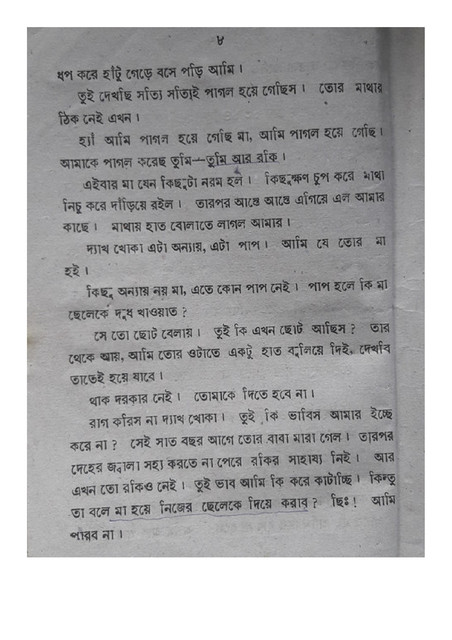 ৮
ধপ করে হাঁটু গেড়ে বসে পড়ি আমি।
তুই দেখছি সত্যি সত্যিই পাগল হয়ে গেছিস। তোর মাথার
ঠিক নেই এখন।
হ্যাঁ আমি পাগল হয়ে গেছি মা, আমি পাগল হয়ে গেছি।
আমাকে পাগল করেছ তুমি—তুমি আর রকি।
এইবার মা যেন কিছুটা নরম হল। কিছুক্ষণ চুপ করে মাথা
নিচু করে দাঁড়িয়ে রইল। তারপর আস্তে আস্তে এগিয়ে এল আমার
কাছে। মাথায় হাত বোলাতে লাগল আমার।
দ্যাখ খোকা এটা অন্যায়, এটা পাপ। আমি যে তোর মা
হই।
কিছু অন্যায় নয় মা, এতে কোন পাপ নেই। পাপ হলে কি মা
ছেলেকে দুধ খাওয়াত?
সে তো ছোট বেলায়। তুই কি এখন ছোট আছিস? তার
থেকে আয়, আমি তোর ওটাতে একটু হাত বুলিয়ে দিই, দেখবি
তাতেই হয়ে যাবে।
থাক দরকার নেই। তোমাকে দিতে হবে না।
রাগ করিস না দ্যাখ খোকা। তুই কি ভাবিস আমার ইচ্ছে
করে না? সেই সাত বছর আগে তোর বাবা মারা গেল। তারপর
দেহের জ্বালা সহ্য করতে না পেরে রকির সাহায্য নিই। আর
এখন তো রকিও নেই। তুই ভাব আমি কি করে কাটাচ্ছি। কিন্তু
তা বলে মা হয়ে নিজের ছেলেকে দিয়ে করাব? ছিঃ! আমি
পারব না।